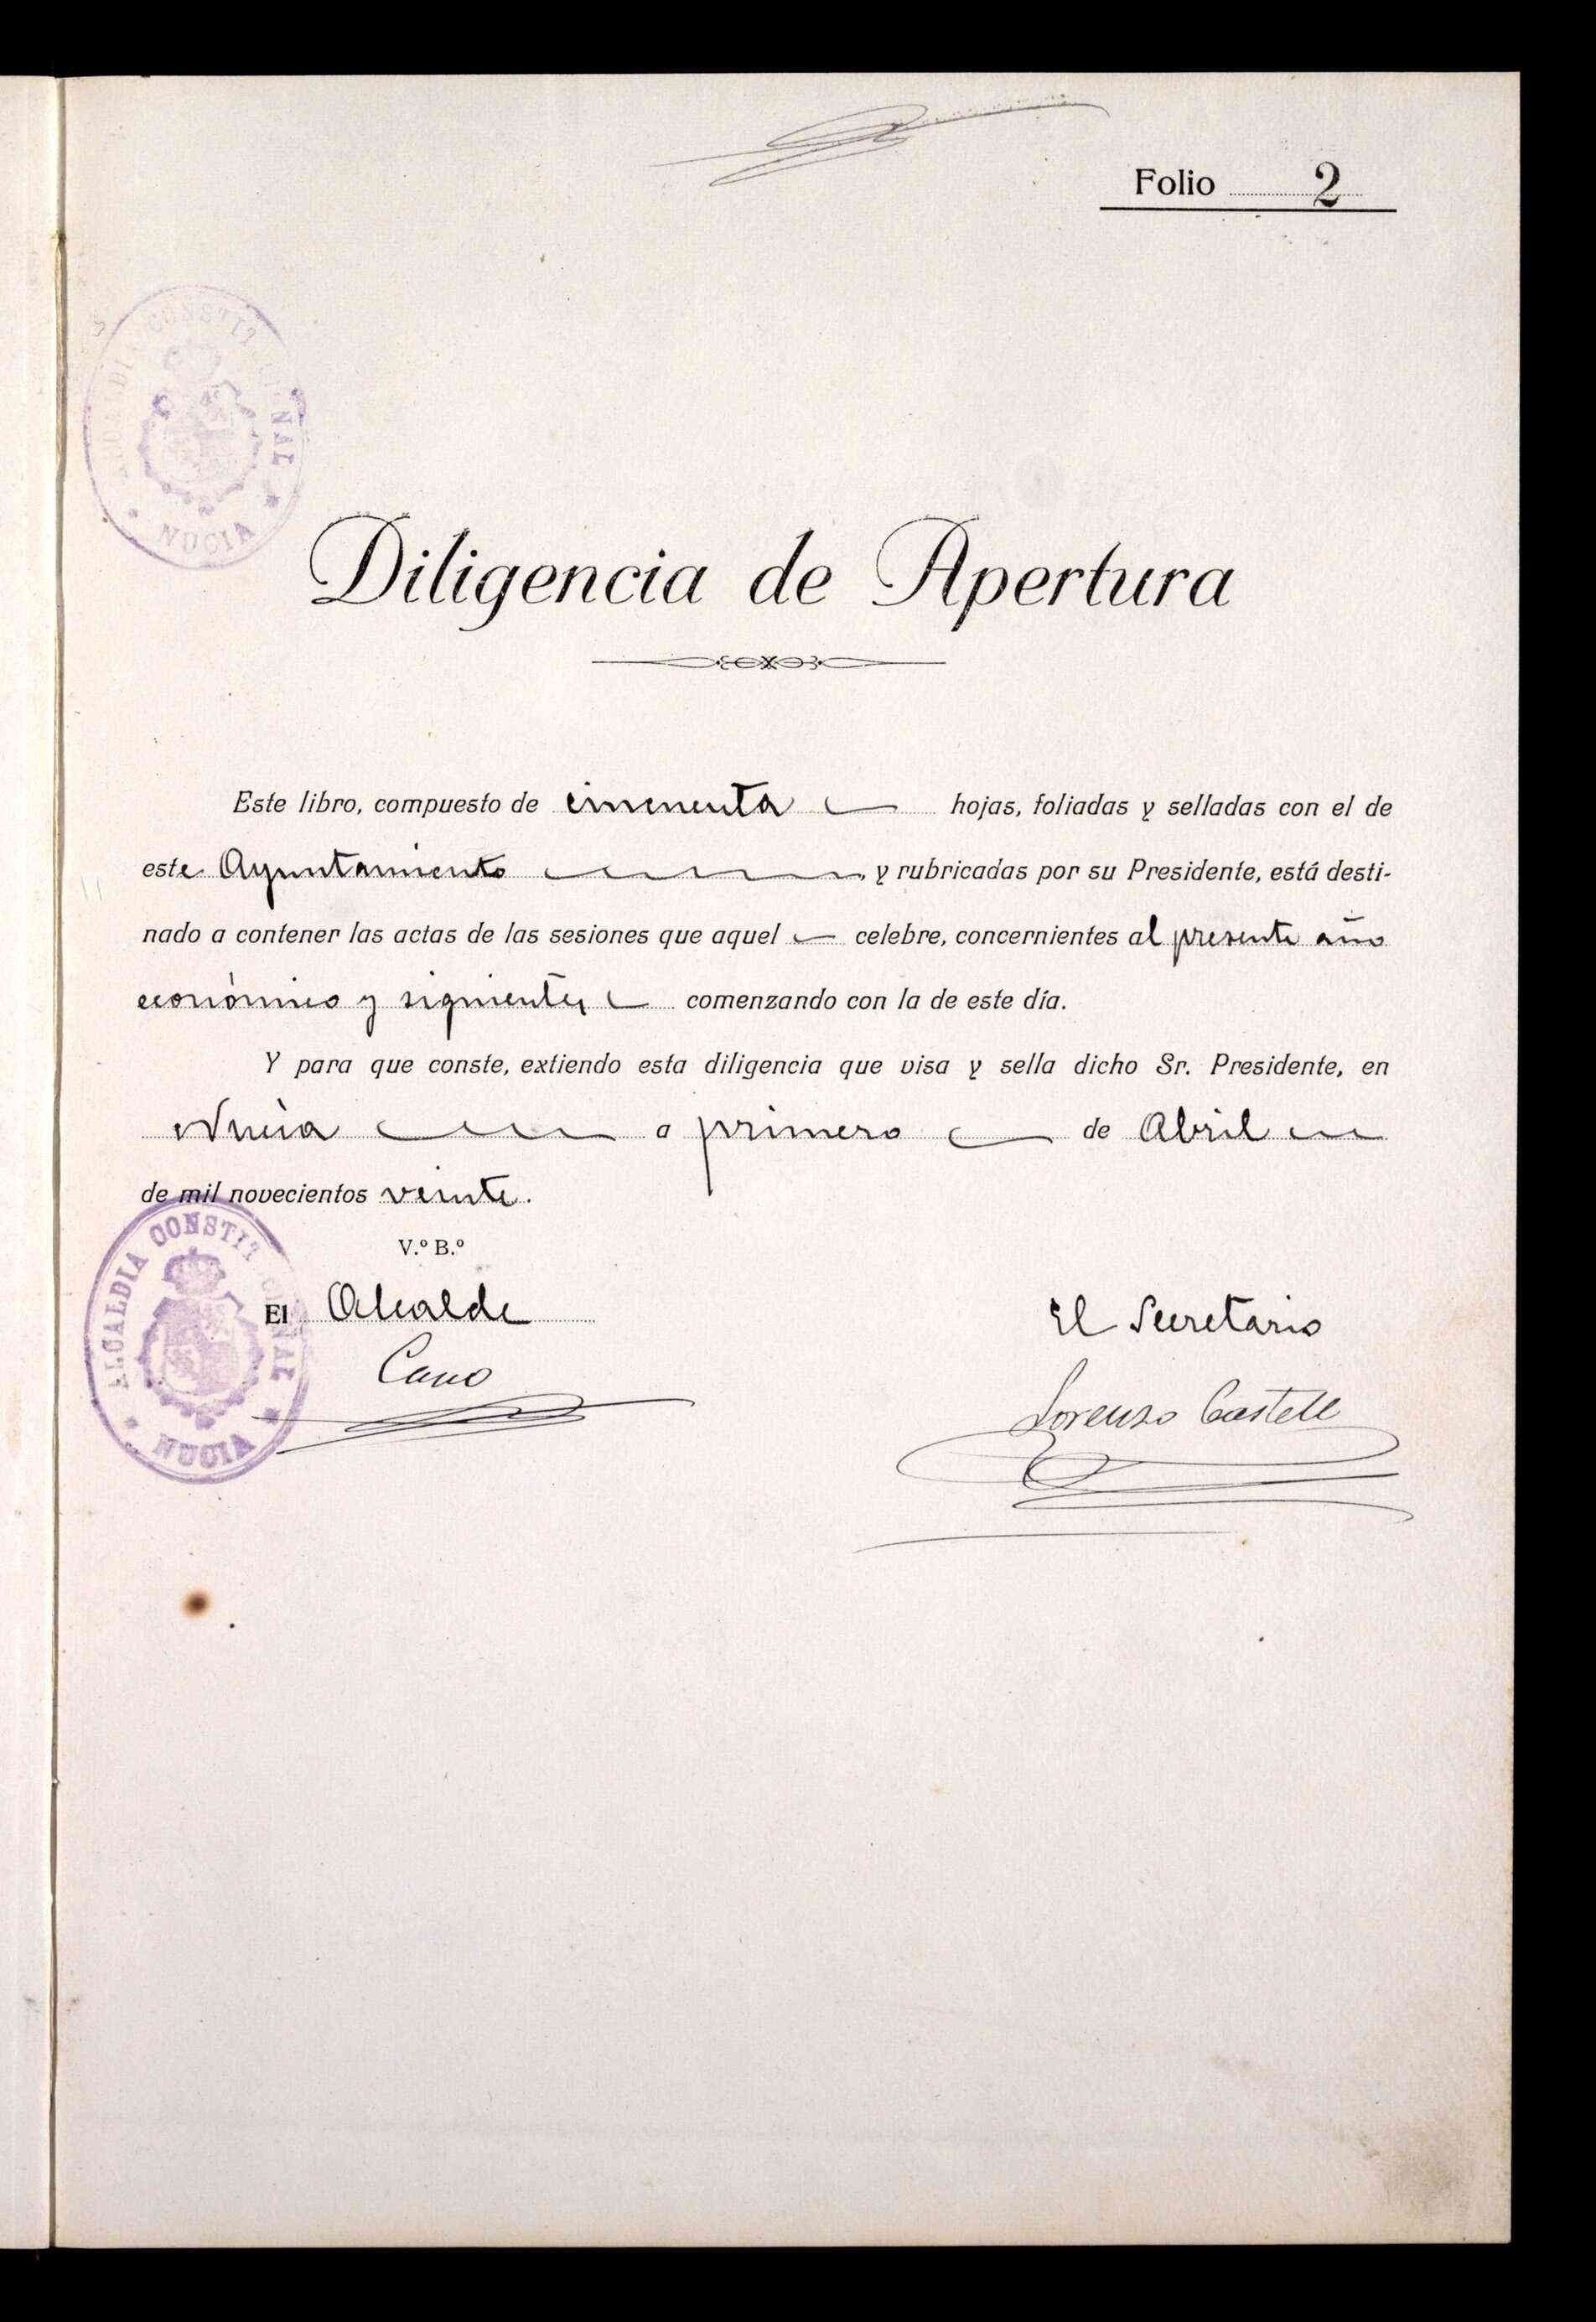 Folio 2
ALCALDIA CONSTITUCIONAL
* NUCIA *
Diligencia de Apertura
Este libro, compuesto de cincuenta hojas, foliadas y selladas con el de
este Ayuntamiento y rubricadas por su Presidente, está desti-
nado a contener las actas de las sesiones que aquel celebre, concernientes al presente año
económico y siguientes comenzando con la de este día.
Y para que conste, extiendo esta diligencia que visa y sella dicho Sr. Presidente, en
Nucia a primero de Abril
de mil novecientos veinte.
V.º B.º
El Alcalde
Cano
El Secretario
Lorenzo Castell
ALCALDIA CONSTITUCIONAL
* NUCIA *